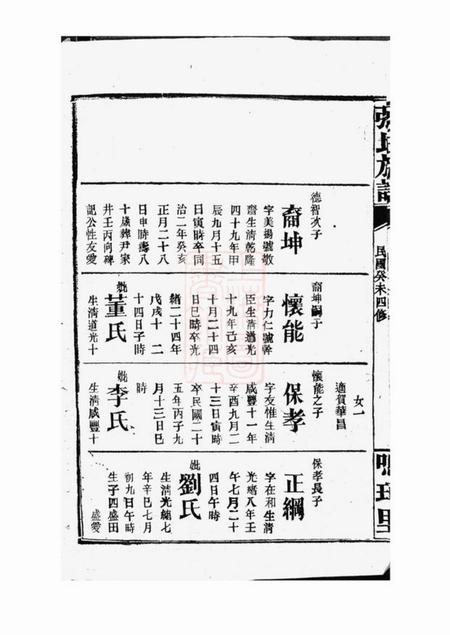 張氏族譜
民國癸未四修
鳴珂里
德智次子
裔坤
字美錫號敬
齋生清乾隆
四十九年甲
辰九月十五
日寅時卒同
治二年癸亥
正月二十八
日申時壽八
十歲葬尹家
井壬丙向碑
記公性友愛
裔坤嗣子
懷能
字力仁號幹
臣生清道光
十九年己亥
十月二十四
日巳時卒光
緒二十四年
戊戌十二
十四日子時
妣董氏
生清道光十
女一
適賀華昌
懷能之子
保孝
字友惟生清
咸豐十一年
辛酉九月二
十三日寅時
卒民國二十
五年丙子九
月十三日巳
時
妣李氏
生清咸豐十
保孝長子
正綱
字在和生清
光緒八年壬
午七月二十
四日午時
妣劉氏
生清光緒七
年辛巳七月
初九日午時
生子四盛田
盛愛